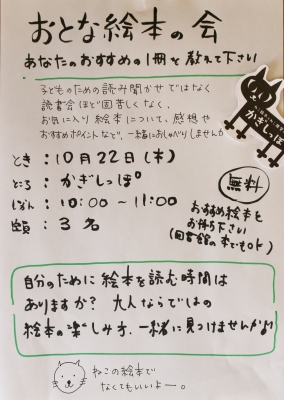 おとな絵本の会
あなたのおすすめの1冊を教えて下さい
子どものための読み聞かせではなく
読書会ほど固苦しくなく、
お気に入り絵本について、感想や
おすすめポイントなど、一緒におしゃべりしませんか
かぎしっぽ
とき：10月22日(木)
ところ：かぎしっぽ
じかん：10:00～11:00
定員：3名
無料
おすすめ絵本を
お持ち下さい
(図書館の本でもOK)
自分のために絵本を読む時間は
ありますか？大人ならではの
絵本の楽しみ方、一緒に見つけませんか♪
ねこの絵本で
なくてもいいよー。